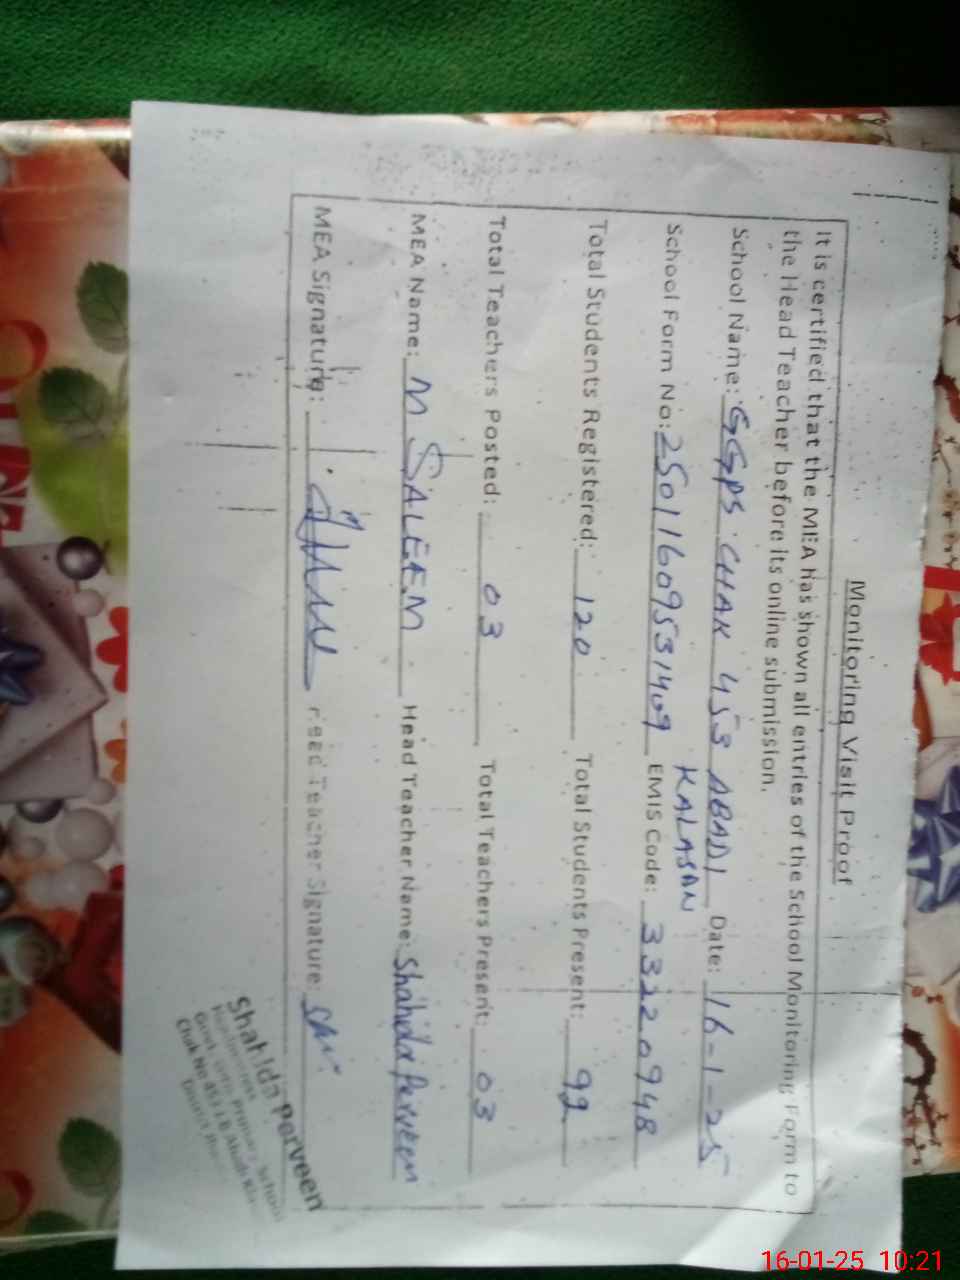 Monitoring Visit Proof
It is certified that the MEA has shown all entries of the School Monitoring Form to
the Head Teacher before its online submission.
School Name: GGPS CHAK 453 ABADI Date: 16-1-25
KALASAN
School Form No: 25011609531409 EMIS Code: 33220948
Total Students Registered: 120 Total Students Present: 92
Total Teachers Posted: 03 Total Teachers Present: 03
MEA Name: M SALEEM Head Teacher Name: Shahida Perveen
MEA Signature: Head Teacher Signature:
Shahida Perveen
Primary School
Chak No 453
16-01-25 10:21